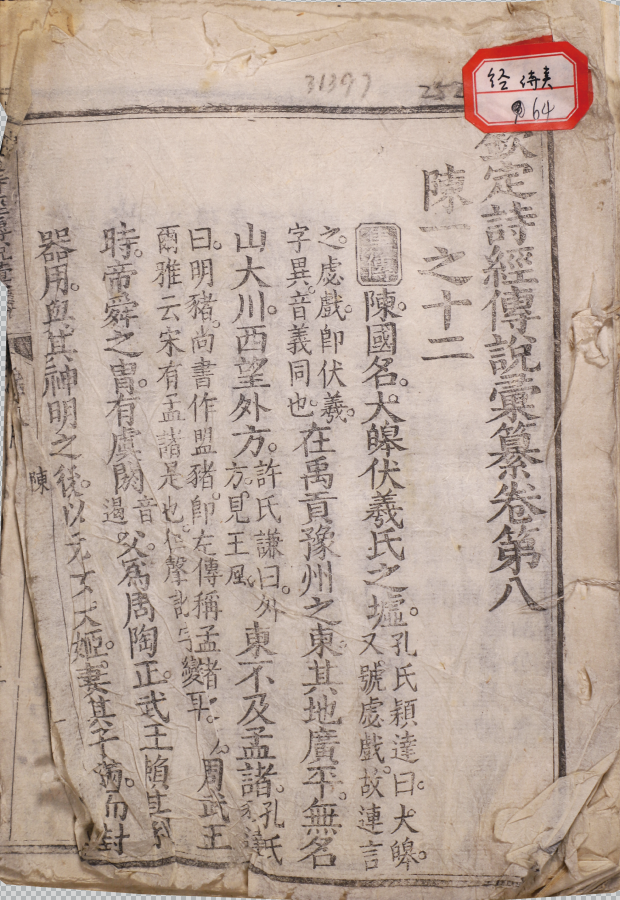 31397
252
经 诗类
964
欽定詩經傳說彙纂卷第八
陳一之十二
集傳 陳國名。大皞伏羲氏之墟。孔氏穎達曰。大皞。又號虙戲。故連言
之。虙戲。卽伏羲。字異。音義同也。在禹貢豫州之東。其地廣平。無名
山大川。西望外方。許氏謙曰。外方。見王風。東不及孟諸。孔氏穎達
曰。明豬。尚書作盟豬。卽左傳稱孟諸。爾雅云宋有孟諸是也。但聲訛字變耳。周武王
時。帝舜之冑。有虞閼音遏父。爲周陶正。武王賴其
器用。與其神明之後。以元女大姬。妻其子滿。而封
陳